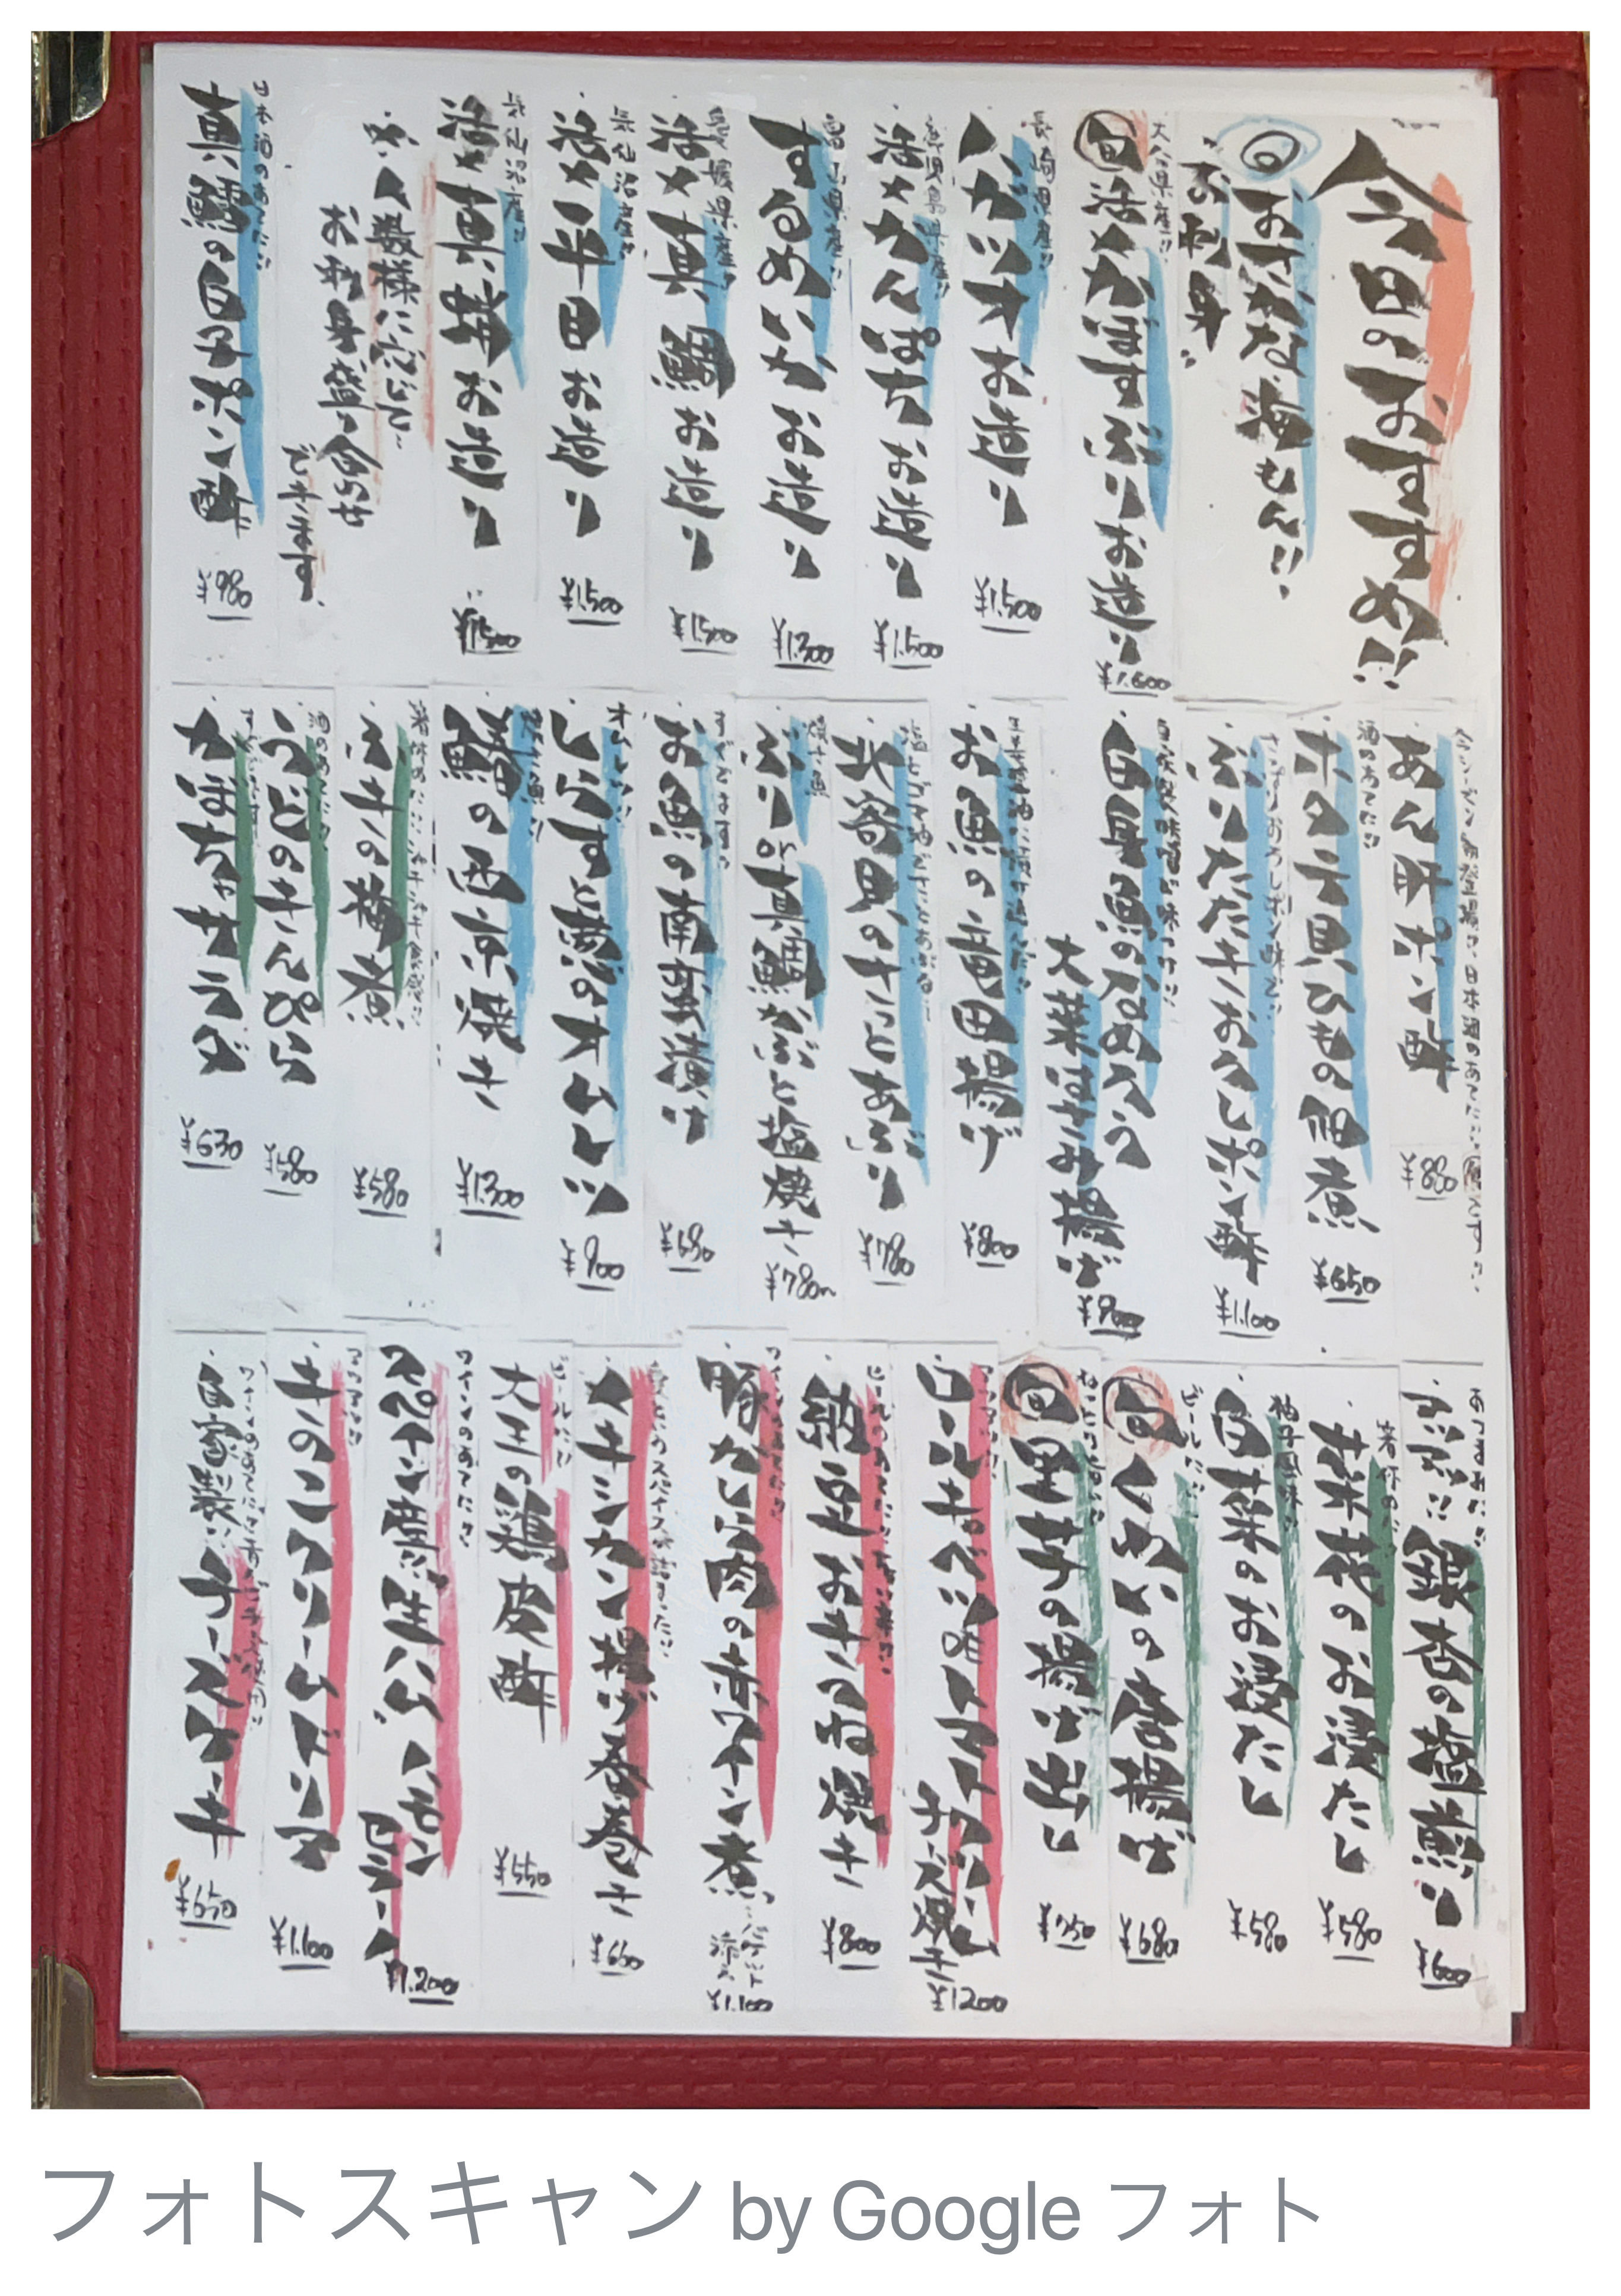 今日のおすすめ!!
旬おさかな、海もん!!
お刺身
大分県産!!
旬活〆かぼすぶりお造り
¥1.600
長崎県産!!
ハガツオお造り
¥1.500
鹿児島県産!!
活〆かんぱちお造り
¥1.500
富山県産!!
するめいかお造り
¥1.300
愛媛県産!!
活〆真鯛お造り
¥1.500
気仙沼産!!
活〆平目お造り
¥1.500
気仙沼産!!
活〆真鯖お造り
¥1.500
※人数様に応じて
お刺身盛り合わせ
できます
日本酒のあんたに!!
真鱈の白子ポン酢
¥980
今シーズン初登場!!日本酒のあてに!!
あん肝ポン酢
¥880
酒のあてに!!
ホタテ貝ひもの佃煮
¥650
たっぷりおろしポン酢で!!
ぶりたたきおろしポン酢
¥1.100
自家製味噌と味つけ!!
白身魚のなめろう
大葉はさみ揚げ
¥900
お魚の竜田揚げ
¥800
氷室豚のすっとあぶり
¥780
焼き魚
ぶりor真鯛かぶと塩焼き
¥780〜
すぐでます!!
お魚の南蛮漬け
¥680
オムレツ!!
しらすと葱のオムレツ
¥900
焼き魚!!
鰆の西京焼き
¥1.300
ふきの梅煮
¥580
酒のあてに!!
うどのきんぴら
¥580
すぐでます!!
かぼちゃサラダ
¥630
あつまみに!!
銀杏の塩煎り
¥600
菜花のお浸たし
¥580
柚子風味!!
白菜のお浸たし
¥580
ビールに!!
旬くわいの唐揚げ
¥680
旬里芋の揚げ出し
¥750
アツアツ!!
ロールキャベツのトマトクリーム
チーズ焼き
¥1200
ビールのあてに!!
納豆お好のね焼き
¥800
ワインのあてに!!
豚かしら肉の赤ワイン煮
バゲット
添え
¥1.100
メキシカン揚げ春巻き
¥650
ビールに!!
大王の鶏皮酢
¥550
ワインのあてに!!
スペイン産!!生ハム ハモン
セラーノ
¥1.200
アツアツ!!
きのこクリームドリア
¥1.100
自家製!!チーズケーキ
¥650
フォトスキャン by Google フォト